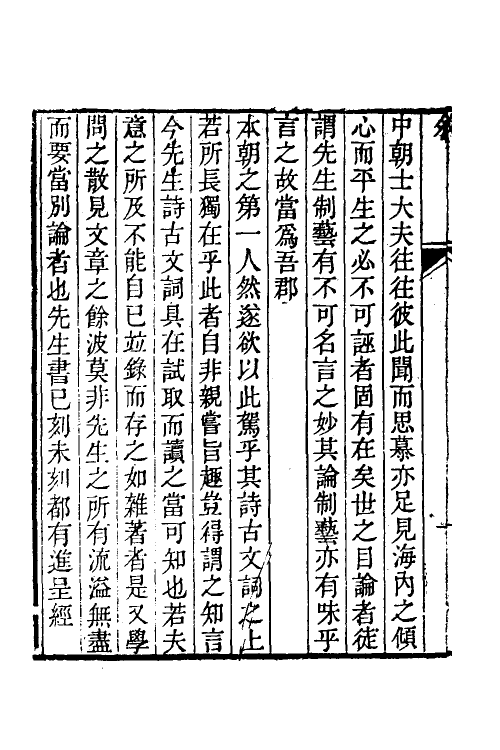 中朝士大夫往往彼此聞而思慕亦足見海內之傾
心而平生之必不可誣者固有在矣世之目論者徒
謂先生制藝有不可名言之妙其論制藝亦有味乎
言之故當爲吾郡
本朝之第一人然遂欲以此駕乎其詩古文詞之上
若所長獨在乎此者自非親嘗旨趣豈得謂之知言
今先生詩古文詞具在試取而讀之當可知也若夫
意之所及不能自已並錄而存之如雜著者是又學
問之散見文章之餘波莫非先生之所有流溢無盡
而要當別論者也先生書已刻未刻都有進呈經